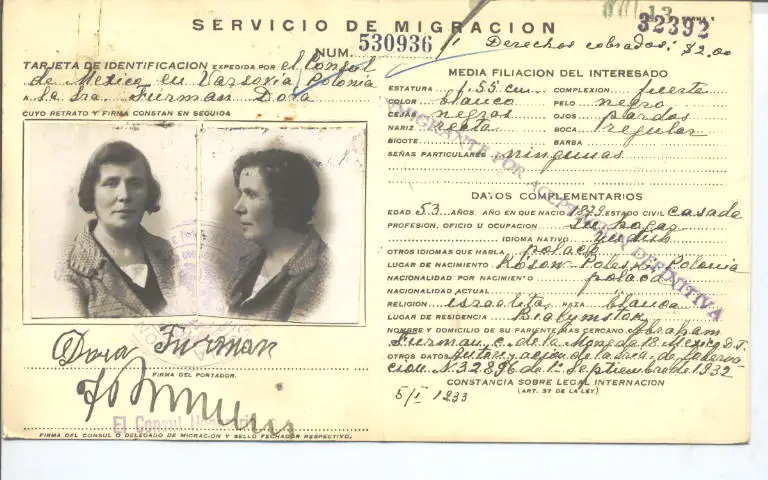 SERVICIO DE MIGRACION
32392
NUM. 530936
Derechos cobrados: $2.00
TARJETA DE IDENTIFICACION EXPEDIDA POR el Consul
de Mexico en Varsovia, Polonia
A la Sra. Furman Dora
CUYO RETRATO Y FIRMA CONSTAN EN SEGUIDA
Dora Furman
FIRMA DEL PORTADOR.
El Consul
FIRMA DEL CONSUL O DELEGADO DE MIGRACION Y SELLO FECHADOR RESPECTIVO.
MEDIA FILIACION DEL INTERESADO
ESTATURA 1.55 cm. COMPLEXION fuerte
COLOR blanco PELO negro
CEJAS negras OJOS pardos
NARIZ recta BOCA regular
BIGOTE BARBA
SEÑAS PARTICULARES ningunas
INMIGRANTE POR ACEPTACION DEFINITIVA
DATOS COMPLEMENTARIOS
EDAD 53 AÑOS. AÑO EN QUE NACIO 1879 ESTADO CIVIL casada
PROFESION, OFICIO U OCUPACION su hogar
IDIOMA NATIVO yidish
OTROS IDIOMAS QUE HABLA polaco
LUGAR DE NACIMIENTO Polonia
NACIONALIDAD POR NACIMIENTO polaca
NACIONALIDAD ACTUAL
RELIGION israelita RAZA blanca
LUGAR DE RESIDENCIA Bialymstok
NOMBRE Y DOMICILIO DE SU PARIENTE MAS CERCANO Abraham
Furman, c. de la Moneda 18. Mexico D.F.
OTROS DATOS de la Sria. de Gobernacion N. 32896 de 1° Septiembre de 1932
CONSTANCIA SOBRE LEGAL INTERNACION
(ART. 37 DE LA LEY)
5/I 1933